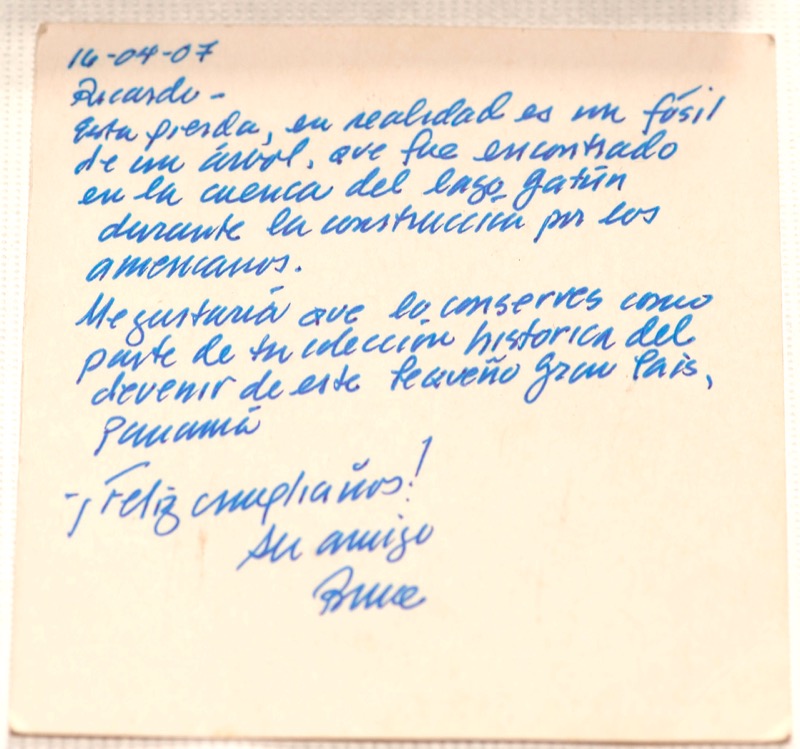 16-04-07
Ricardo -
Esta piesda, en realidad es un fósil
de un árbol, que fue encontrado
en la cuenca del lago Gatún
durante la construcción por los
americanos.
Me gustaría que lo conserves como
parte de tu colección historica del
devenir de este Pequeño Gran País,
Panamá
-¡Feliz cumpliaños!
Su amigo